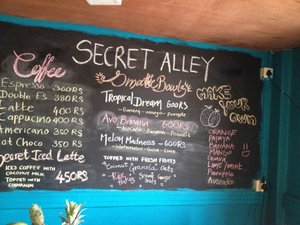 SECRET ALLEY
Coffee
Espresso 300RS
Double Es 380RS
Latte 400RS
Cappuccino 400RS
Americano 350RS
ot Choc 350RS
ecret Iced Latte
ICED COFFEE WITH
COCONUT MILK
TOPPED WITH
CINNAMON
450RS
Smoothie Bowls
Tropical Dream 600RS
- Banana - Mango - Pineapple
Avo Banana 600RS
- Avocado - Banana -
Melon Madness - 600RS
- Watermelon -
TOPPED WITH FRESH FRUITS
Coconut Granola Oats
MAKE
YOUR
OWN
ORANGE
PAPAYA
BANANA
MANGO
Guava
Lime/mint
Pineapple
Avocado